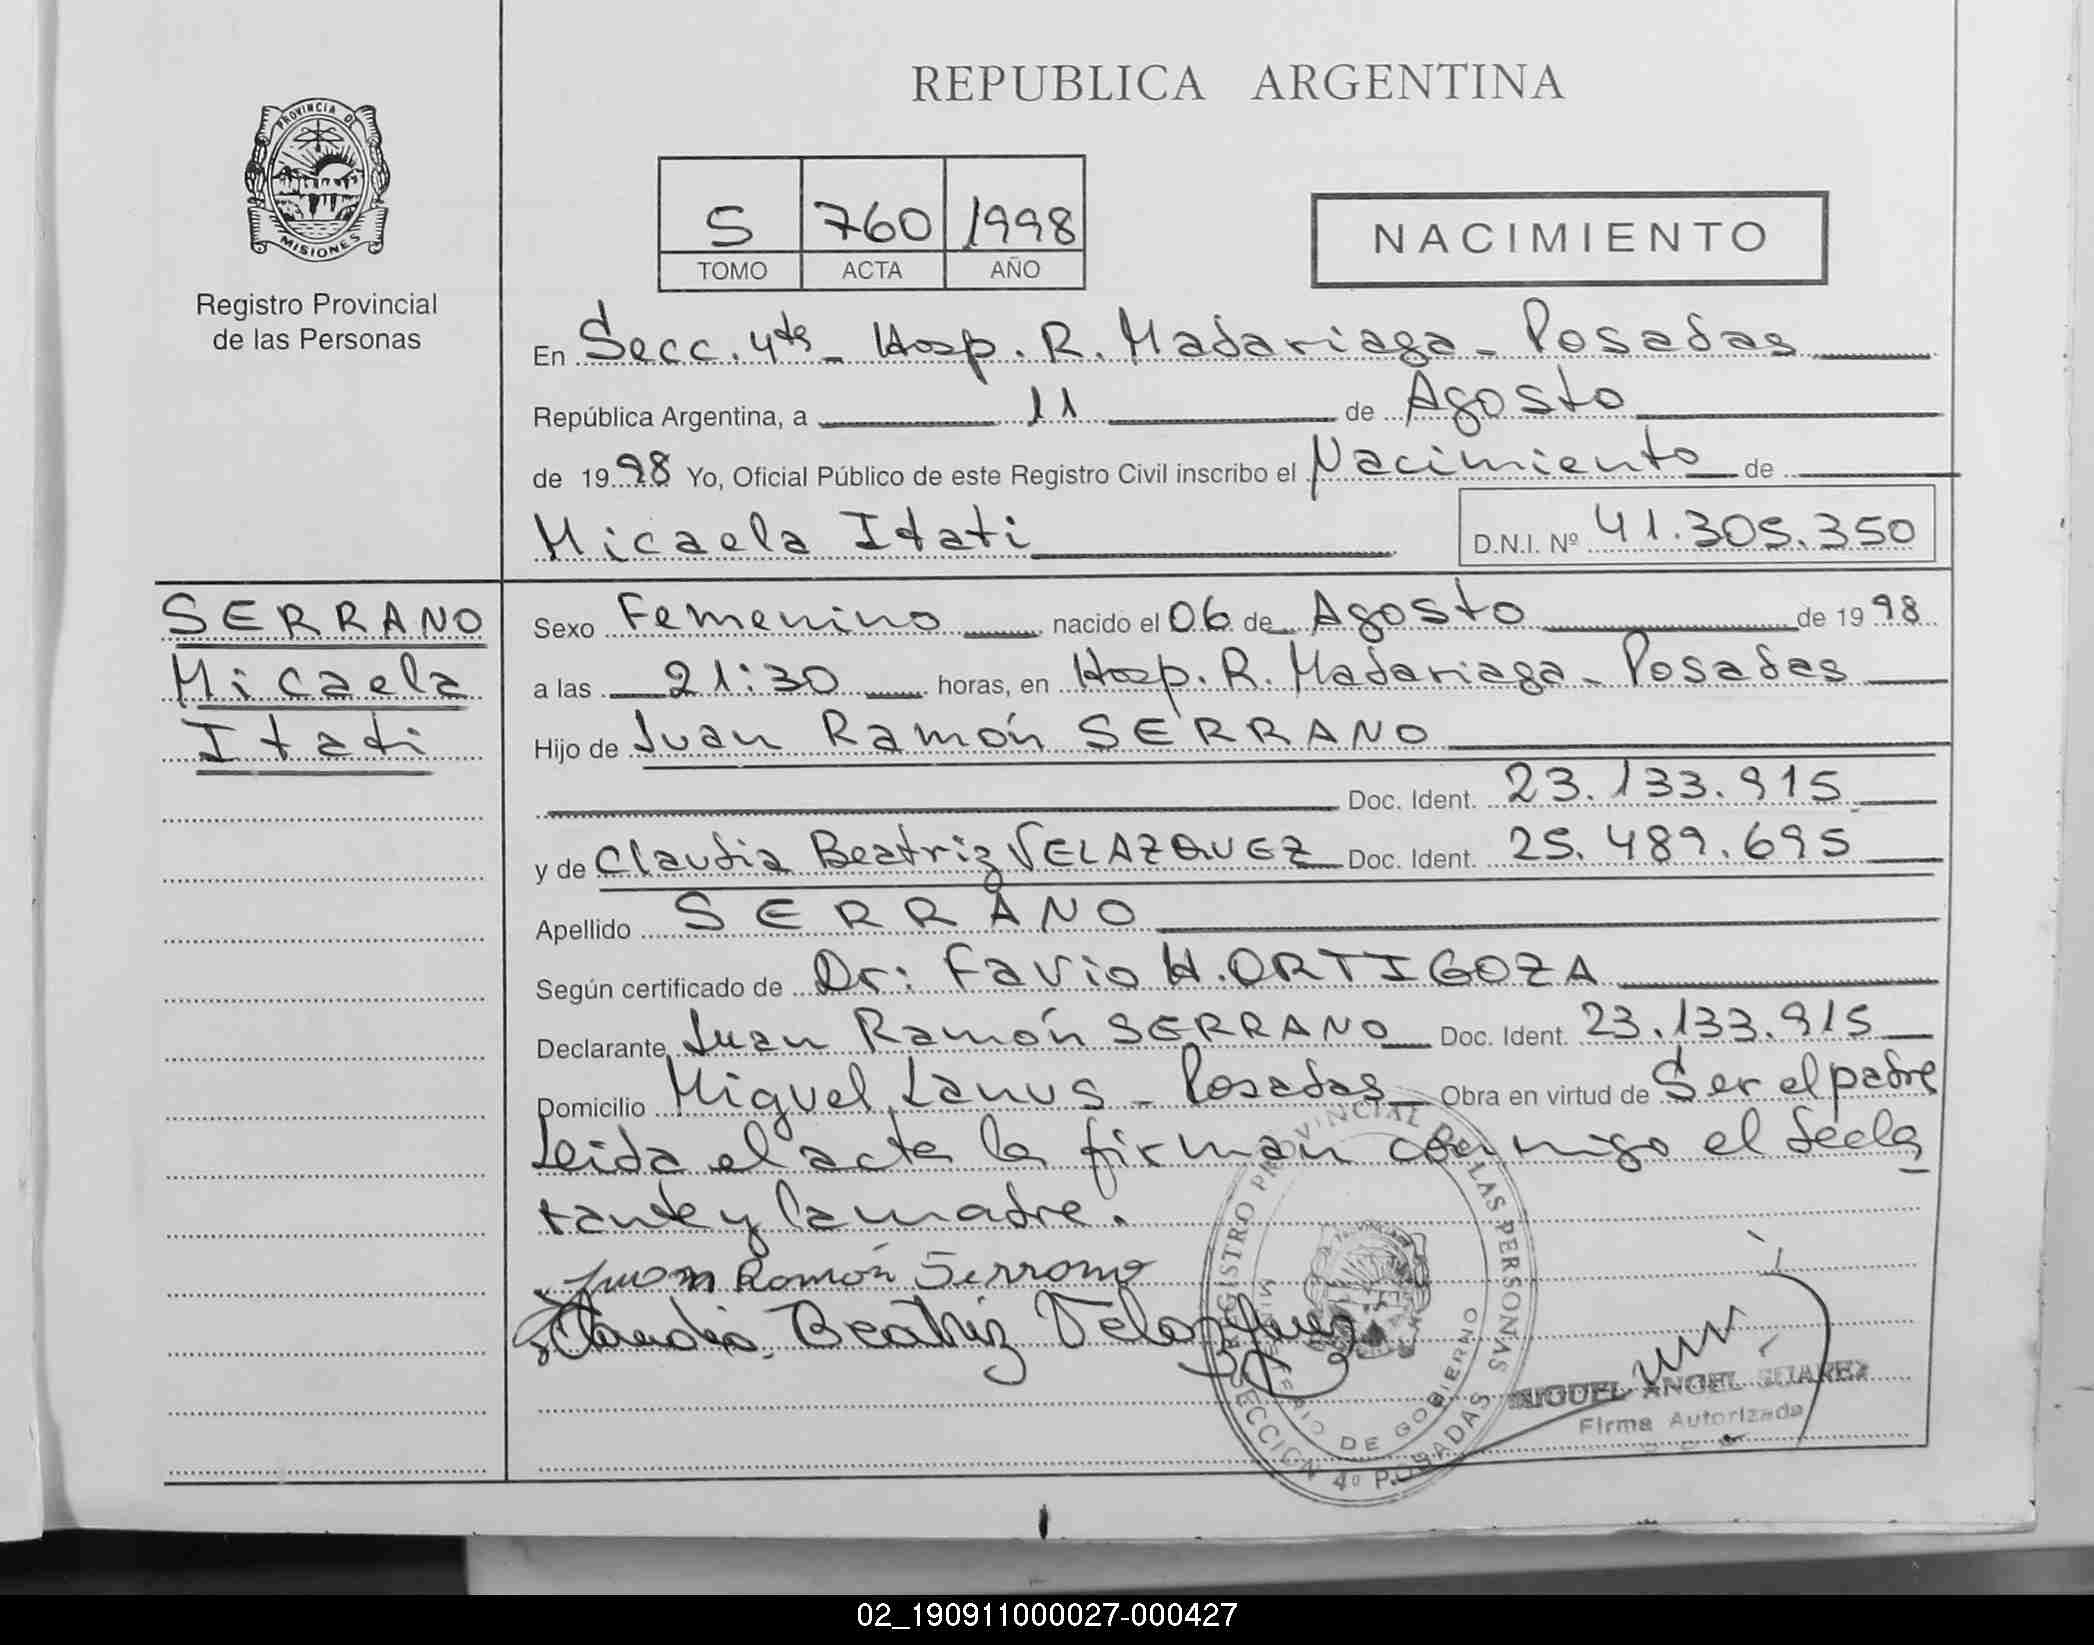 REPUBLICA ARGENTINA
PROVINCIA DE
MISIONES
Registro Provincial
de las Personas
S 760 1998
TOMO ACTA AÑO
NACIMIENTO
En Secc. 4ta - Hosp. R. Madariaga - Posadas
República Argentina, a 11 de Agosto
de 1998 Yo, Oficial Público de este Registro Civil inscribo el Nacimiento de
Micaela Itati D.N.I. Nº 41.305.350
SERRANO
Micaela
Itati
Sexo Femenino nacido el 06 de Agosto de 1998
a las 21:30 horas, en Hosp. R. Madariaga - Posadas
Hijo de Juan Ramón SERRANO
Doc. Ident. 23.133.915
y de Claudia Beatriz VELAZQUEZ Doc. Ident. 25.489.695
Apellido SERRANO
Según certificado de Dr: Favio H. ORTIGOZA
Declarante Juan Ramón SERRANO Doc. Ident. 23.133.915
Domicilio Miguel Lanus - Posadas Obra en virtud de Ser el padre
Leida el acta la firman conmigo el decla
rante y la madre.
Juan Ramón Serrano
Claudia Beatriz Velazquez
REGISTRO PROVINCIAL DE LAS PERSONAS
MINISTERIO DE GOBIERNO
SECCION 4º POSADAS
MIGUEL ANGEL SUAREZ
Firma Autorizada
02_190911000027-000427